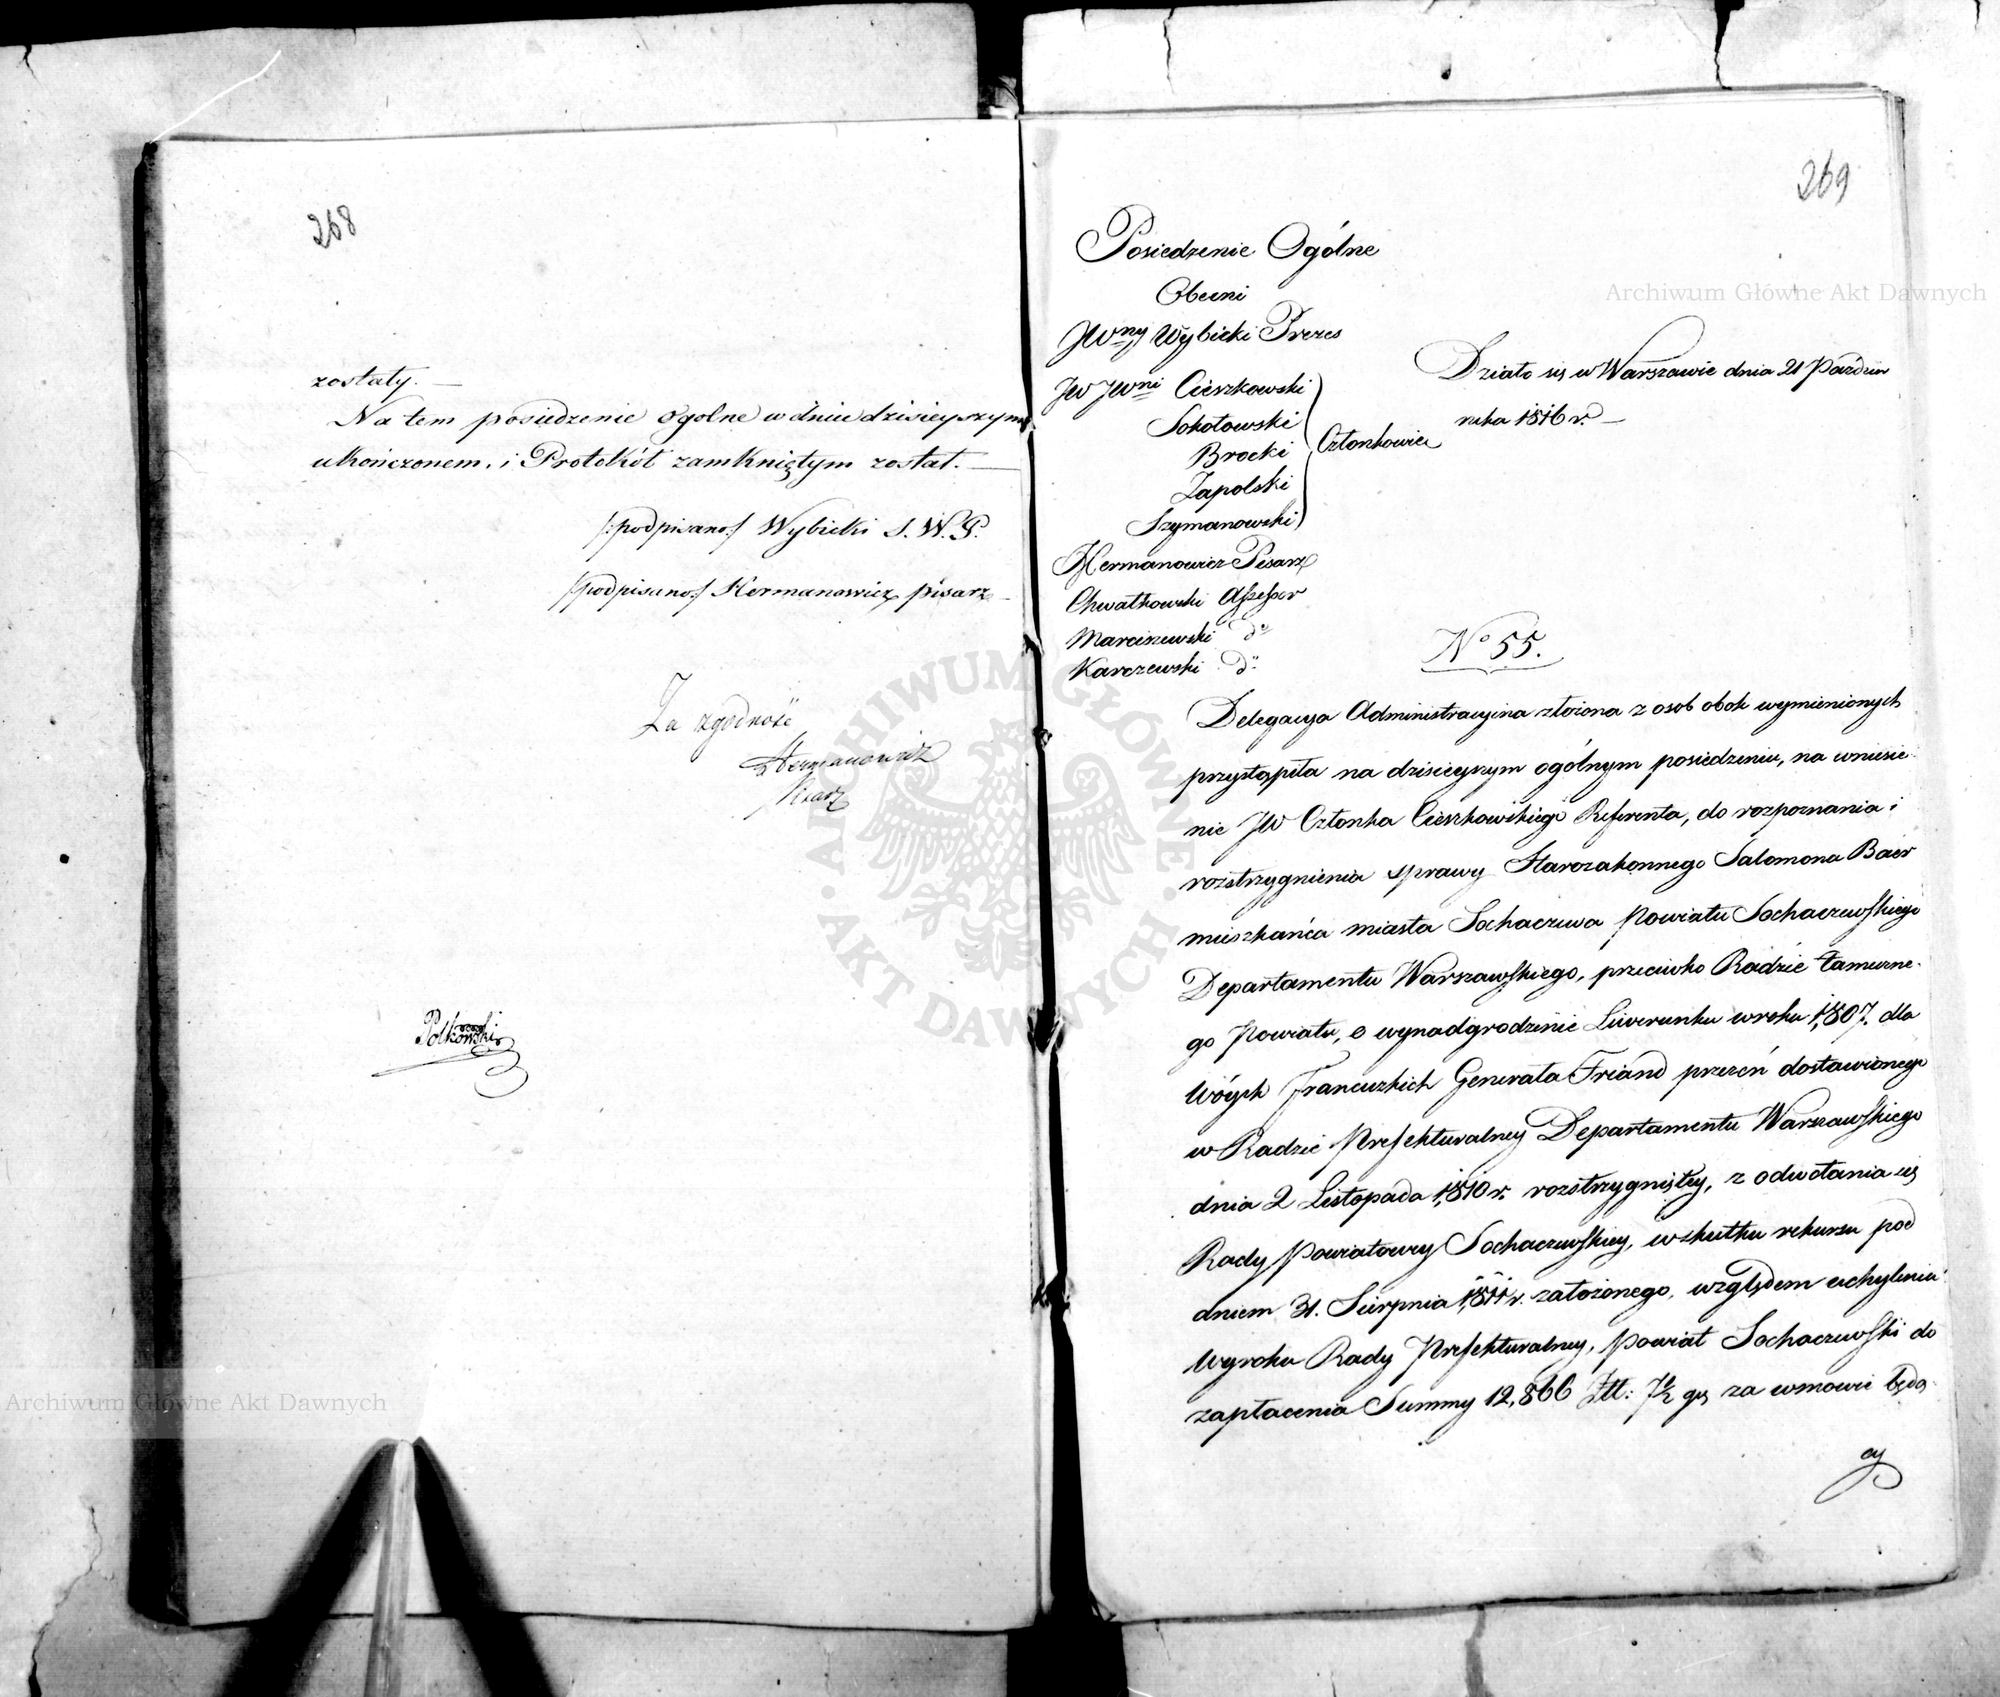 268
zostały. —
Na tem posiedzenie ogolne w dniu dzisieyszym
ukończonem, i Protokół zamkniętym został. —
/:podpisano:/ Wybicki S. W. P.
/:podpisano:/ Hermanowicz pisarz —
Za zgodność
Hermanowicz
Pisarz
Polkowski
269
Posiedzenie Ogólne
Obecni
JWny Wybicki Prezes
JW JWni Cieszkowski
Sokołowski
Brocki
Zapolski
Szymanowski
Członkowie
Hermanowicz Pisarz
Chwałkowski Assessor
Marciszewski do
Karczewski do
Działo się w Warszawie dnia 21 Paździer
nika 1816 r. —
No 55.
Delegacya Administracyina złożona z osob obok wymienionych
przystąpiła na dzisieyszym ogólnym posiedzeniu, na wniesie-
nie JW Członka Cieszkowskiego Referenta, do rozpoznania i
rozstrzygnienia sprawy Starozakonnego Salomona Baer
mieszkańca miasta Sochaczewa Powiatu Sochaczewskiego
Departamentu Warszawskiego, przeciwko Radzie tameczne-
go Powiatu, o wynadgrodzenie Liwerunku w roku 1807. dla
Wóysk Francuzkich Generała Friand przezeń dostawionego
w Radzie Prefekturalney Departamentu Warszawskiego
dnia 2 Listopada 1810 r. rozstrzygniętey, z odwołania się
Rady Powiatowey Sochaczewskiey, w skutku rekursu pod
dniem 31. Sierpnia 1811 r. założonego, względem uchylenia
Wyroku Rady Prefekturalney, Powiat Sochaczewski do
zapłacenia Summy 12,866 Złł: 7½ gr za umowie będą-
cy
Archiwum Główne Akt Dawnych
Archiwum Główne Akt Dawnych
ARCHIWUM GŁÓWNE AKT DAWNYCH